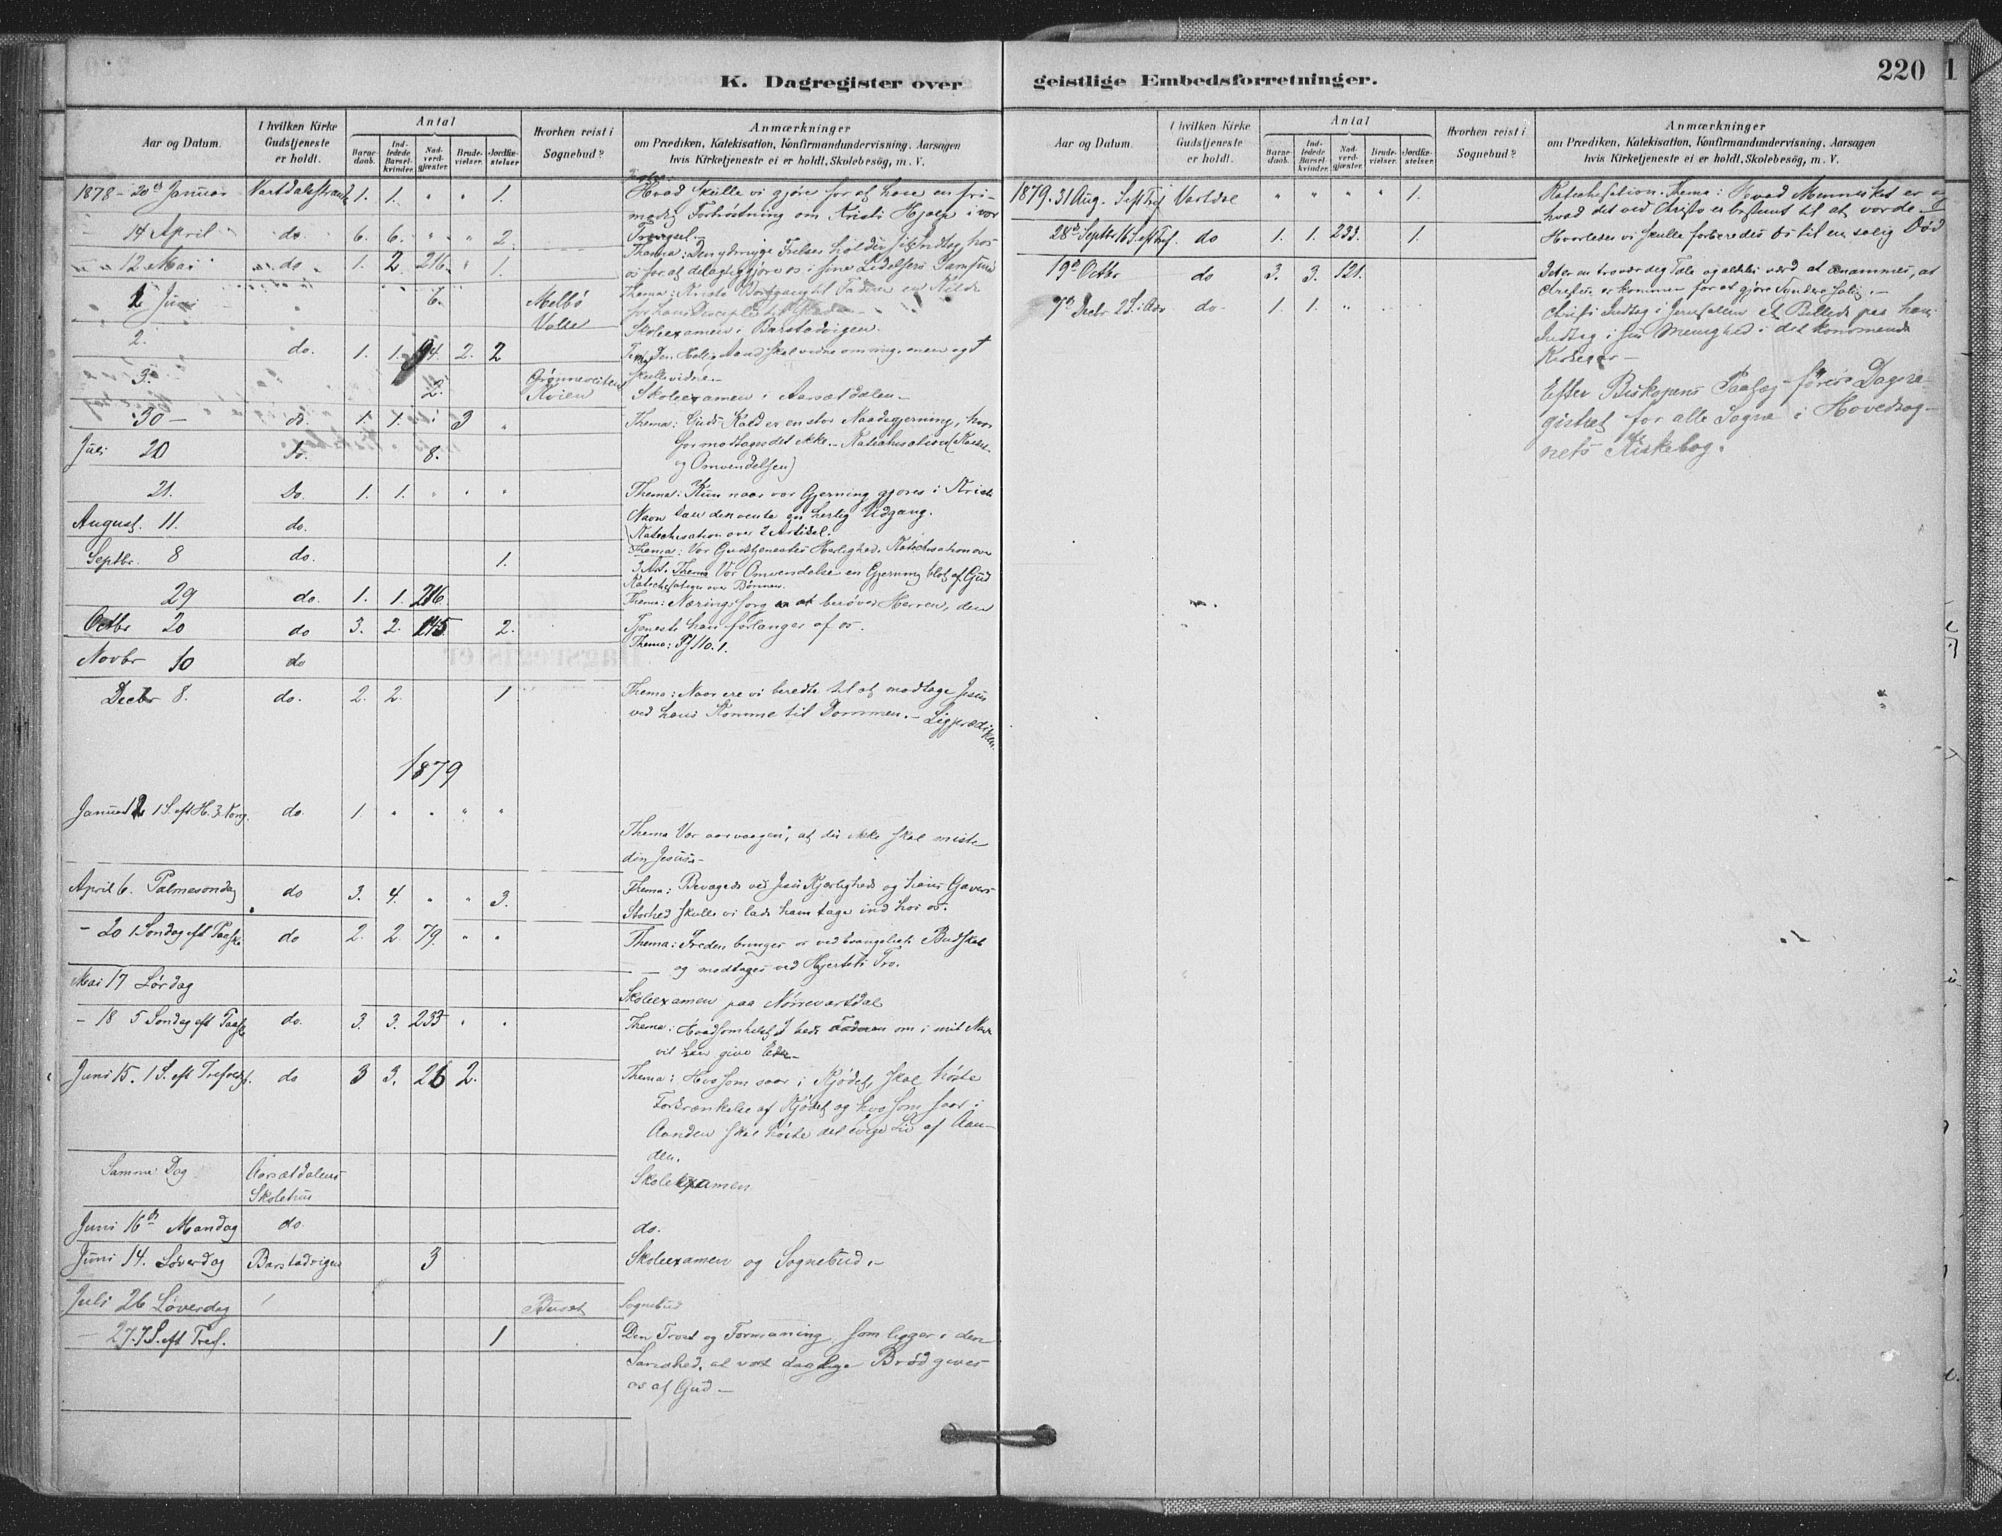 K. Dagregister over
geistlige Embedsforretninger.
220
Aar og Datum.
I hvilken Kirke Gudstjeneste er holdt.
Antal
Barnedaab.
Indledede Barselkvinder.
Nadverdgjæster.
Brudevielser.
Jordfæstelser.
Hvorhen reist i Sognebud?
Anmærkninger
om Prædiken, Katekisation, Konfirmandundervisning. Aarsagen
hvis Kirketjeneste ei er holdt, Skolebesög, m. V.
1878 - 20de Januar 1. 1. " " 1. Hvad skulle vi gjøre for at have en fri-
modig Fortrøstning om Kristi Hjælp i vor
14 April do. 6. 6. " " 2. Trængsel.
12 Mai do. 1. 2. 216. " 1.
Juni 6. Melbø
Valle
Skoleexamen i Barstadvigen.
2. do. 1. 1. 94. 2. 2 Den Hellig Aand skal vidne om mig, men og I
skulle vidne.
3. 2. Kvien Skoleexamen i Aarsætdalen
30 - do. 1. 1. 3 " Thema: Guds Kald er en stor Naadegjerning, hvor
for modtages det ikke. -
Juli 20 Do. 8. og Omvendelsen)
21. Do. 1. 1. " " " Thema: Kun naar vor Gjerning gjøres i Kristi
Navn kan den vente en herlig Udgang.
August. 11. do. Katechisation over 2 Artikel.
Septbr. 8 do. 1. Thema: Vor Gudstjenestes Herlighed. Katechisation over
3 Art. Thema Vor Omvendelse en Gjerning blot af Gud
Katechisation over Bønnen.
29 do. 1. 1. 216. Thema: Næringssorg berøver Herren, den
Octbr 20 do 3. 2. 145 2. Tjeneste han forlanger af os.
Thema: Ps No. 1.
Novbr 10 do
Decbr 8. do. 2. 2. 1 Thema: Naar ere vi beredte til at modtage Jesus
ved hans Komme til Dommen. - Ligprædiken.
1879
Januar 12 1 S. eft H. 3 Kong. do. 1. " " " "
Thema Vær aarvaagen, at du ikke skal miste
din Jesus.-
April 6. Palmesøndag do 3. 4. " " 3. Thema: Bevægede ved Jesu Kjærligheds og hans Gavers
Storhed skulle vi lade ham tage ind hos os.
- 20 1 Søndag eft Paaske do 2. 2 79. " " Thema: Freden bringes os ved Evangeliets Budskab
- og modtages ved Hjertets Tro.
Mai 17 Lørdag
Skoleexamen paa Nørrevartdal
- 18 5 Søndag eft Paaske do. 3. 3. 233 " " Thema: Hvadsomhelst I bede Faderen om i mit Navn
vil han give Eder.-
Juni 15. 1 S. eft Trefoldf. do 3 3. 26 2. Thema: Hvo som saar i Kjødet, skal høste
Forkrænkelse af Kjødet og hvo som saar i
Aanden skal høste det evige Liv af Aan-
den.
Samme Dag Aarsætdalens Skoleexamen
Skolehus
Juni 16de Mandag do do.
Juni 14. Løverdag Barstadvigen 3 Skoleexamen og Sognebud.-
Juli 26 Løverdag Buset Sognebud
- 27. 7 S. eft Tref. 1 Den Trøst og Formaning, som ligger i den
Sandhed, at vort daglige Brød gives
os af Gud -
Aar og Datum.
I hvilken Kirke Gudstjeneste er holdt.
Antal
Barnedaab.
Indledede Barselkvinder.
Nadverdgjæster.
Brudevielser.
Jordfæstelser.
Hvorhen reist i Sognebud?
Anmærkninger
om Prædiken, Katekisation, Konfirmandundervisning. Aarsagen
hvis Kirketjeneste ei er holdt, Skolebesög, m. V.
1879. 31 Aug. Vartdal " " " " 1. Katechisation. Thema: Hvad Mennesket er og
hvad det ved Christo er bestemt til at vorde
28de Septbr 16 S. eft Tref. do 1. 1. 233. 1. Hvorledes vi skulle forberede os til en salig Død
19de Octbr do 3. 3. 121. Det er en troværdig Tale og aldeles værd at annammes, at
Christus er kommen for at gjøre Syndere salig.-
7de Decbr 2 S. i Adv do. 1. 1. " " Christi Indtog i Jerusalem et Billede paa hans
Indtog i sin Menighed i det kommende
Kirkeaar -
Efter Biskopens Paalæg føres Dagre-
gistret for alle Sogne i Hovedsog-
nets Kirkebog.